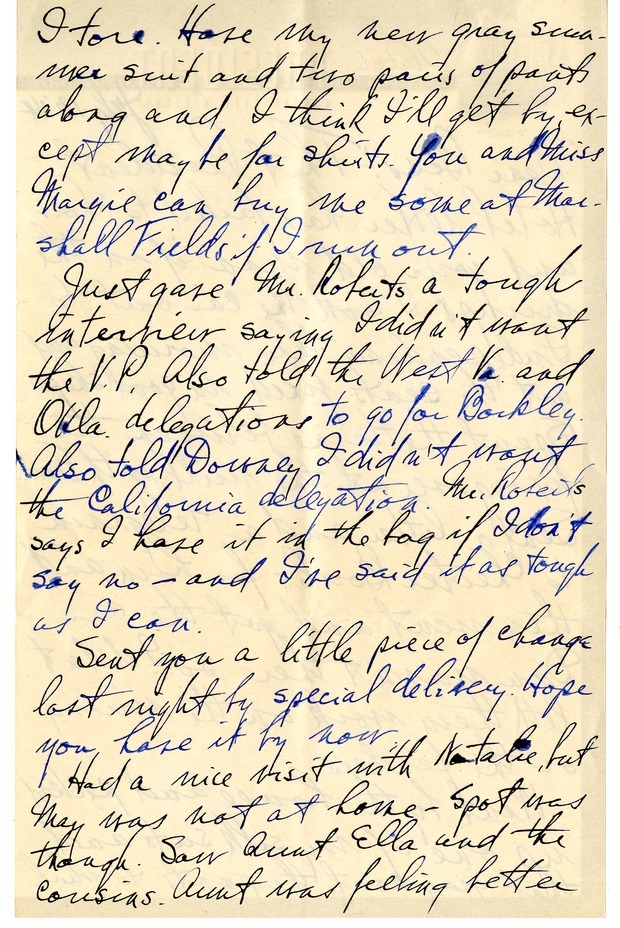 I tore. Have my new gray sum-
mer suit and two pairs of pants
along and I think I'll get by, ex-
cept maybe for shirts. You and Miss
Margie can buy me some at Mar-
shall Fields if I run out.
Just gave Mr. Roberts a tough
interview saying I didn't want
the V.P. Also told the West Va. and
Okla. delegations to go for Barkley.
Also told Downey I didn't want
the California delegation. Mr. Roberts
says I have it in the bag if I don't
say no – and I've said it as tough
as I can.
Sent you a little piece of change
last night by special delivery. Hope
you have it by now.
Had a nice visit with Natalie, but
May was not at home – Spot was
though. Saw Aunt Ella and the
cousins. Aunt was feeling better